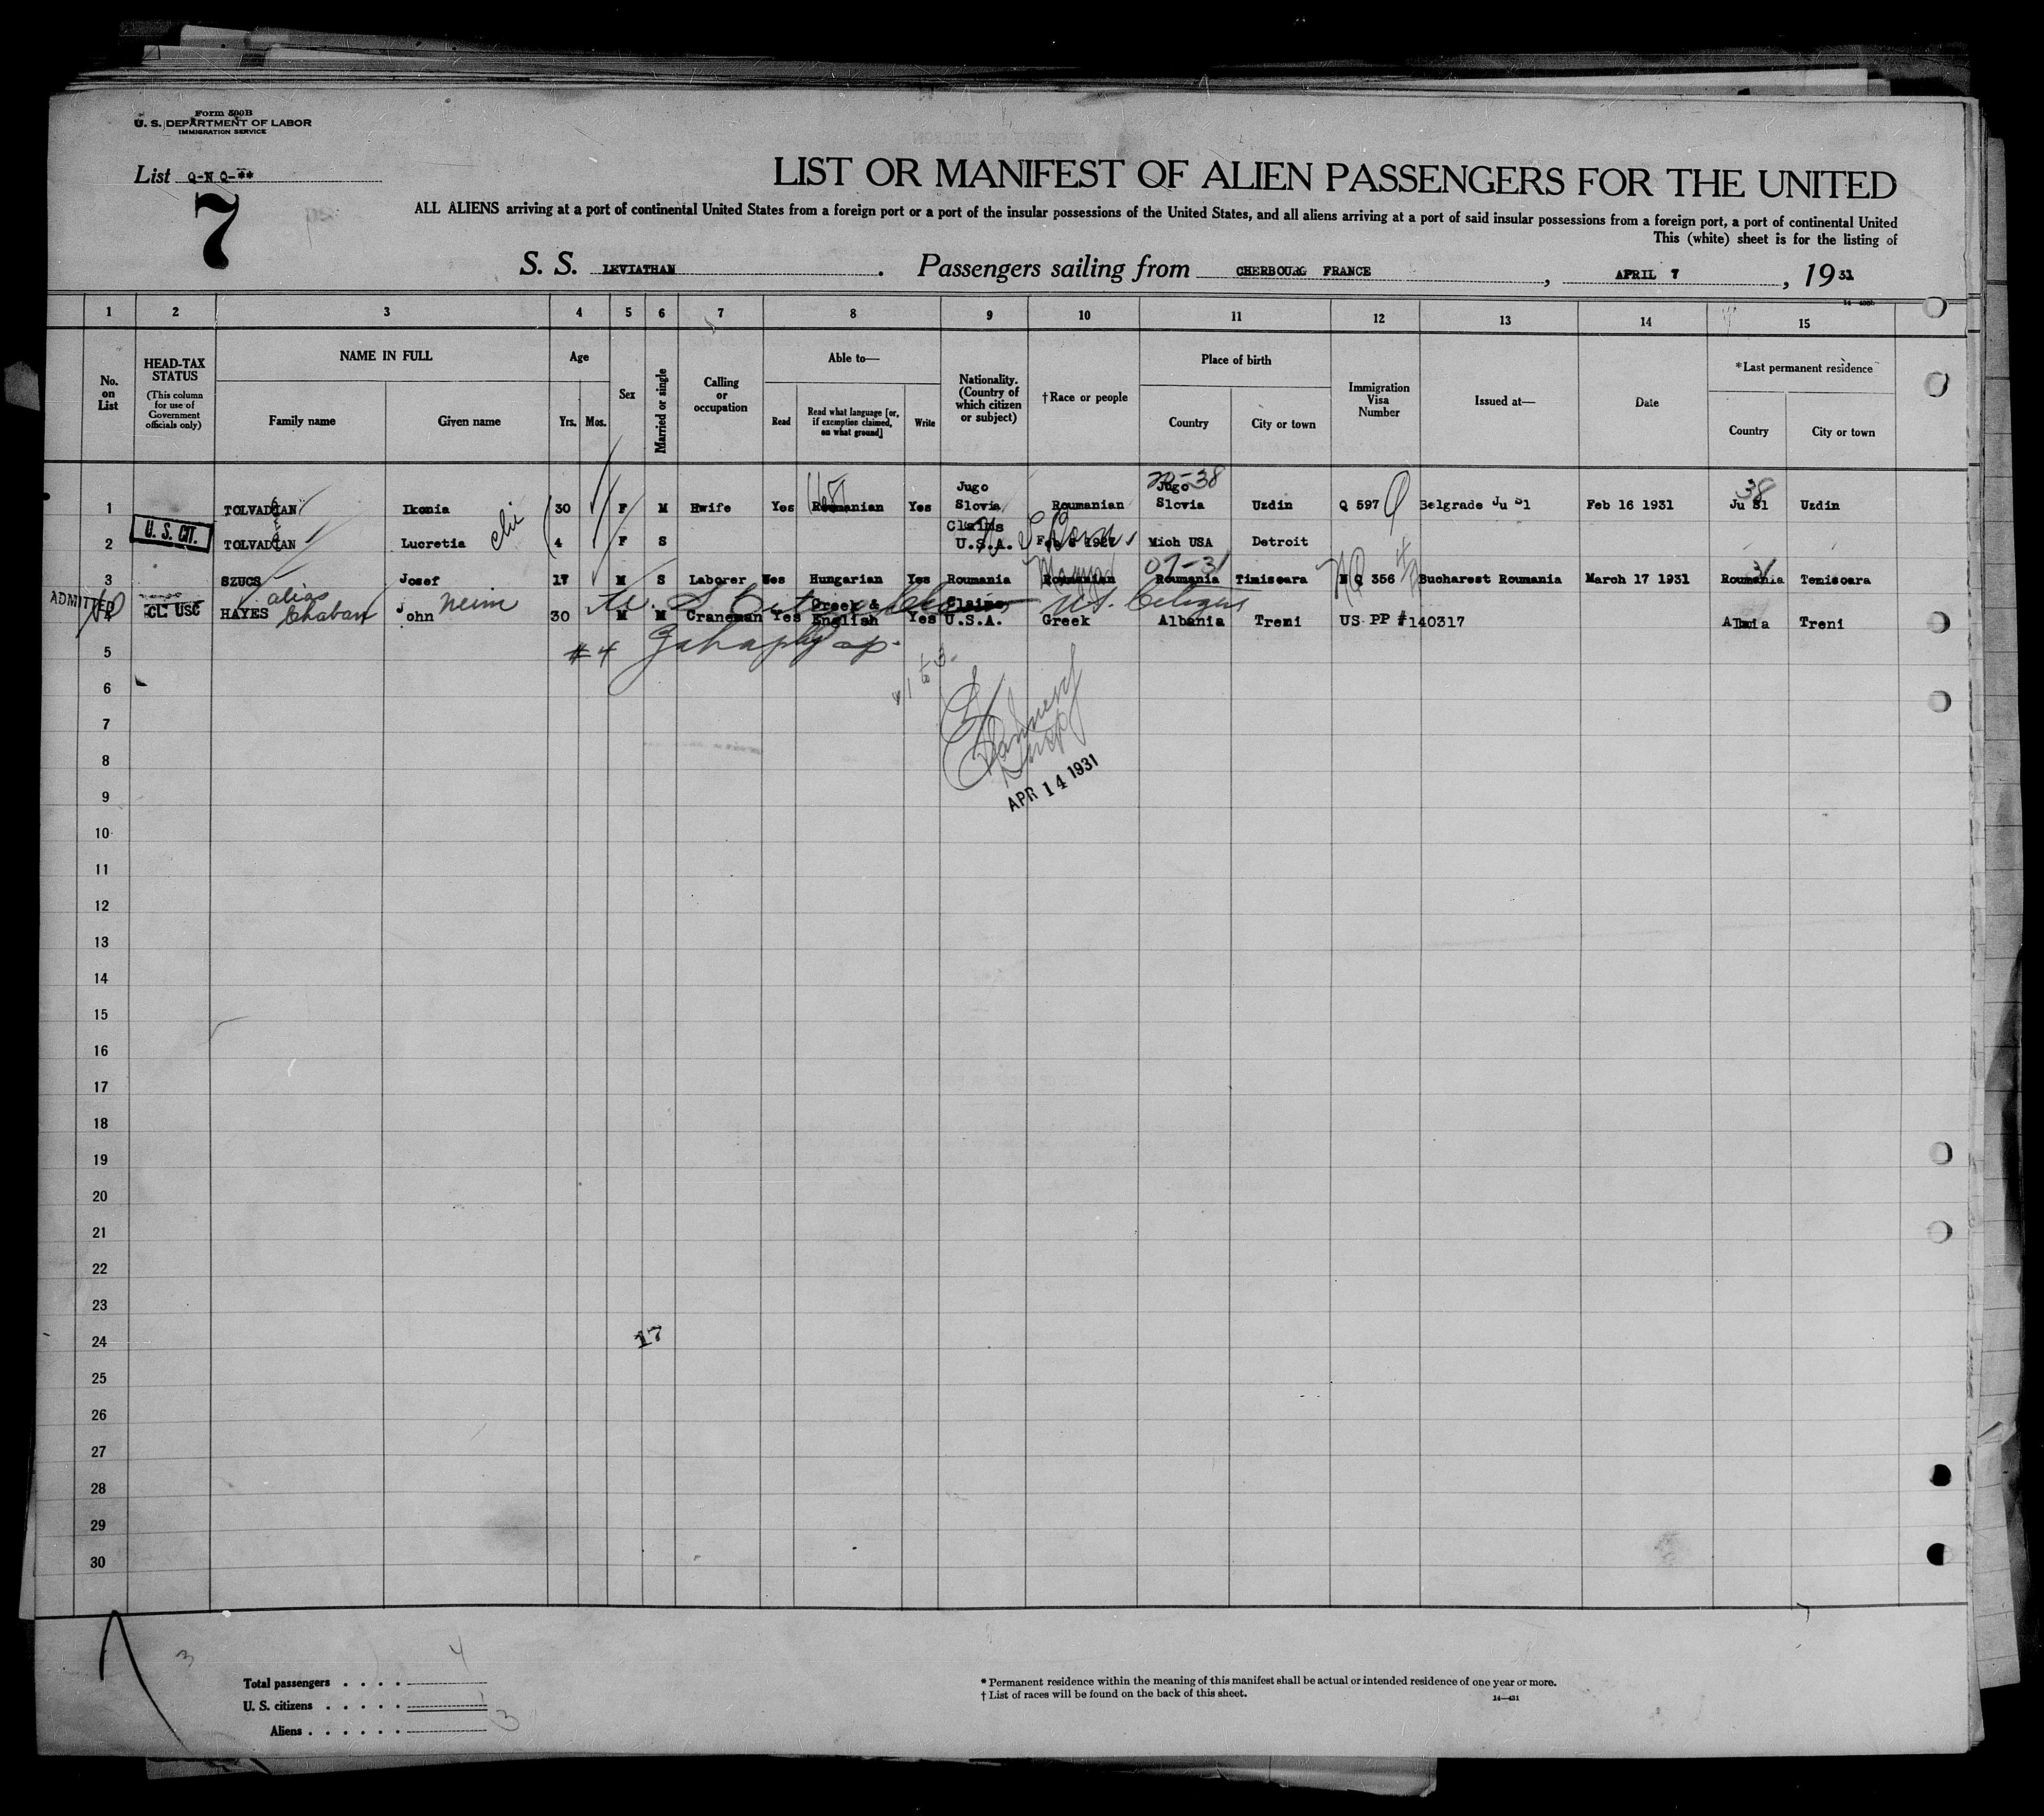 Form 500B
U. S. DEPARTMENT OF LABOR
IMMIGRATION SERVICE
List Q-N Q-**
7
LIST OR MANIFEST OF ALIEN PASSENGERS FOR THE UNITED
ALL ALIENS arriving at a port of continental United States from a foreign port or a port of the insular possessions of the United States, and all aliens arriving at a port of said insular possessions from a foreign port, a port of continental United
This (white) sheet is for the listing of
S. S. LEVIATHAN . Passengers sailing from CHERBOURG FRANCE , APRIL 7 , 19 31
1 2 3 4 5 6 7 8 9 10 11 12 13 14 15
No. on List
HEAD-TAX STATUS
(This column for use of Government officials only)
NAME IN FULL
Family name Given name
Age
Yrs. Mos.
Sex
Married or single
Calling or occupation
Able to—
Read
Read what language [or, if exemption claimed, on what ground]
Write
Nationality. (Country of which citizen or subject)
†Race or people
Place of birth
Country City or town
Immigration Visa Number
Issued at—
Date
*Last permanent residence
Country City or town
1 TOLVADIAN Ikonia 30 F M Hwife Yes Roumanian Yes Jugo Slovia Roumanian Jugo Slovia Uzdin Q 597 Belgrade Ju Sl Feb 16 1931 Ju Sl Uzdin
38
38
U. S. CIT.
2 TOLVADIAN Lucretia 4 F S Claims U.S.A. Mich USA Detroit
3 SZUCS Josef 17 M S Laborer Yes Hungarian Yes Roumania Roumanian Roumania Timisoara N Q 356 Bucharest Roumania March 17 1931 Roumania Temisoara
Magyar
07-31
31
ADMITTED
4 CL. USC HAYES John 30 M M Craneman Yes Greek & English Yes Claims U.S.A. Greek Albania Treni US PP #140317 Treni
alias Chaban Neim
U.S. Citizen
#4
5
6
7
8
APR 14 1931
9
10
11
12
13
14
15
16
17
18
19
20
21
22
23
24
17
25
26
27
28
29
30
3
Total passengers . . . . 4
U. S. citizens . . . . . 1
Aliens . . . . . . 3
* Permanent residence within the meaning of this manifest shall be actual or intended residence of one year or more.
† List of races will be found on the back of this sheet.
14—431